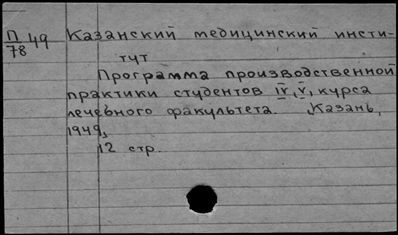 П 49
78
Казанский медицинский инсти-
тут
Программа производственной
практики студентов IV, V, курса
лечебного факультета. Казань,
1949,
12 стр.